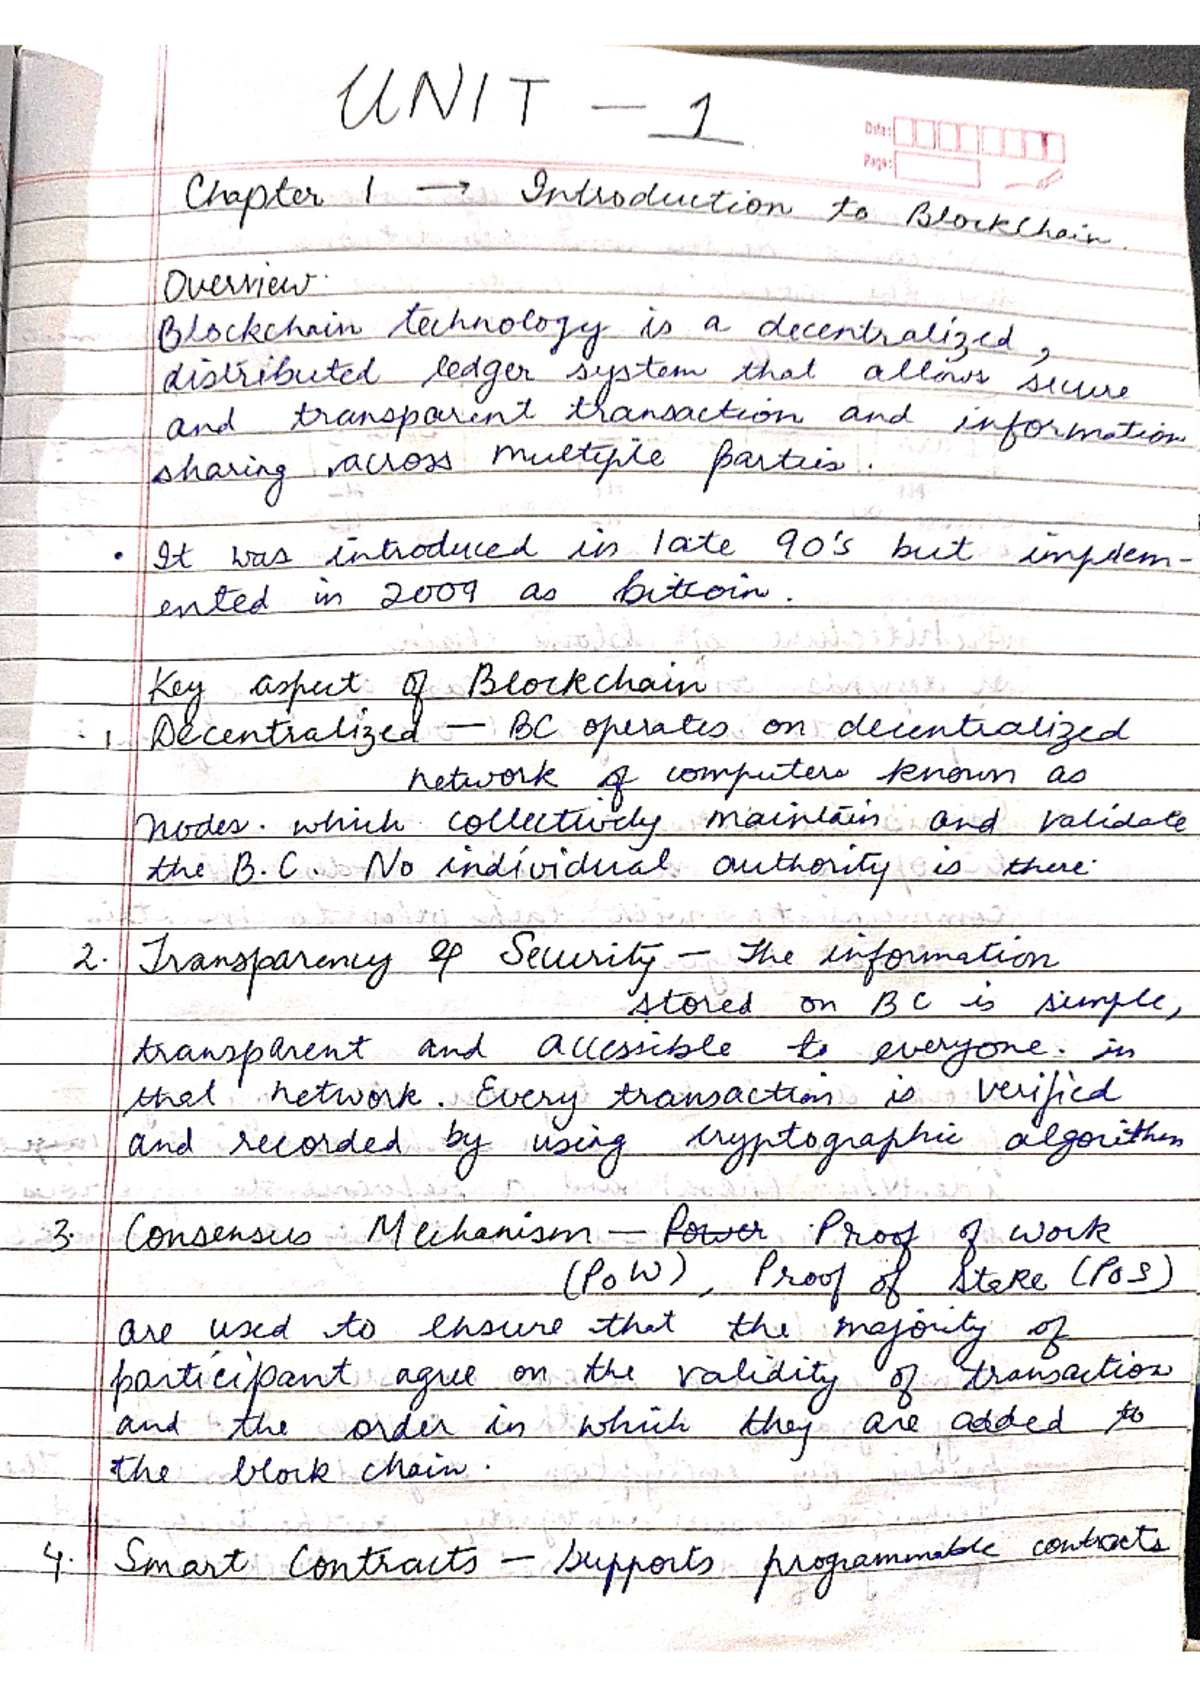 UNIT - 1
Date:
Page:
Chapter 1 → Introduction to BlockChain.
Overview.
Blockchain technology is a decentralized,
distributed ledger system that allows secure
and transparent transaction and information
sharing across multiple parties.
• It was introduced in late 90's but implem-
ented in 2009 as bitcoin.
Key aspect of Blockchain
1. Decentralized — BC operates on decentralized
network of computers known as
nodes. which collectively maintain and validate
the B.C. No individual authority is there.
2. Transparency & Security — The information
stored on BC is simple,
transparent and accessible to everyone. in
that network. Every transaction is verified
and recorded by using cryptographic algorithm
3. Consensus Mechanism — Power Proof of work
(PoW), Proof of Stake (PoS)
are used to ensure that the majority of
participant agree on the validity of transaction
and the order in which they are added to
the block chain.
4. Smart Contracts — supports programmable contracts